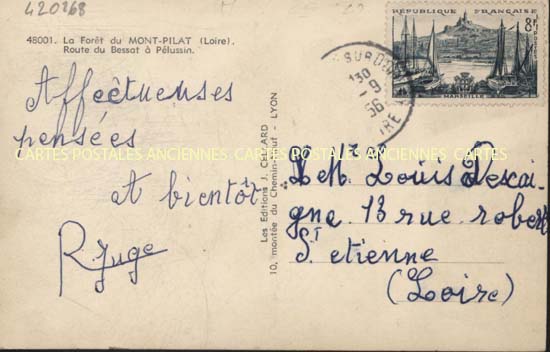 420268
48001. La Forêt du MONT-PILAT (Loire).
Route du Bessat à Pélussin.
Affectueuses
pensées
et bientôt
R Juge
Les Editions J. CELLARD
10, montée du Chemin-Neuf - LYON
RÉPUBLIQUE FRANÇAISE
8F
MARSEILLE
1330
-9
56
Louis Descai-
gne 13 rue robert
St etienne
(Loire)
CARTES POSTALES ANCIENNES CARTES POSTALES ANCIENNES CARTES POSTALES ANCIENNES